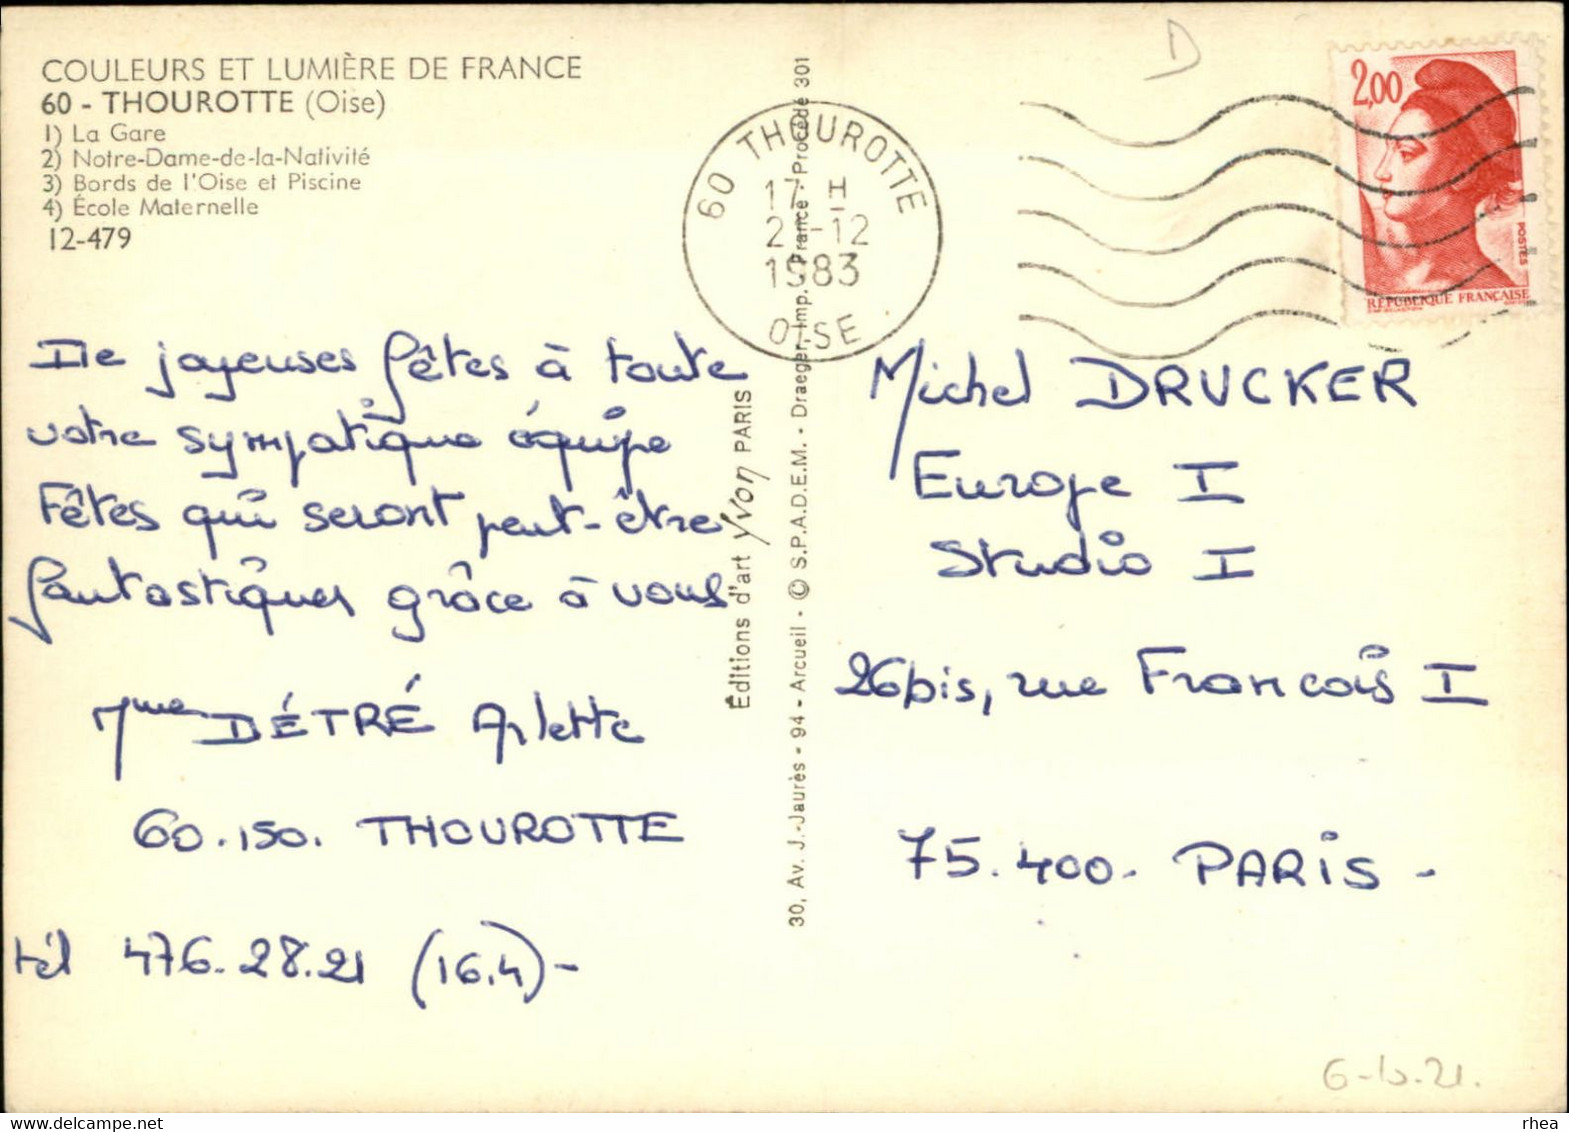 COULEURS ET LUMIÈRE DE FRANCE
60 - THOUROTTE (Oise)
1) La Gare
2) Notre-Dame-de-la-Nativité
3) Bords de l'Oise et Piscine
4) École Maternelle
12-479
De joyeuses fêtes à toute
votre sympatique équipe
Fêtes qui seront peut-être
fantastiques grâce à vous
Mme DÉTRÉ Arlette
60.150. THOUROTTE
tél 476.28.21 (16.4)-
Éditions d'art Yvon PARIS
30, Av. J.-Jaurès - 94 - Arcueil - © S.P.A.D.E.M. - Draeger, Imp. - France - Procédé 301
60 THOUROTTE
17 H
2 -12
1983
OISE
D
2,00
POSTES
RÉPUBLIQUE FRANÇAISE
Michel DRUCKER
Europe I
Studio I
26bis, rue Francois I
75.400. PARIS -
rhea